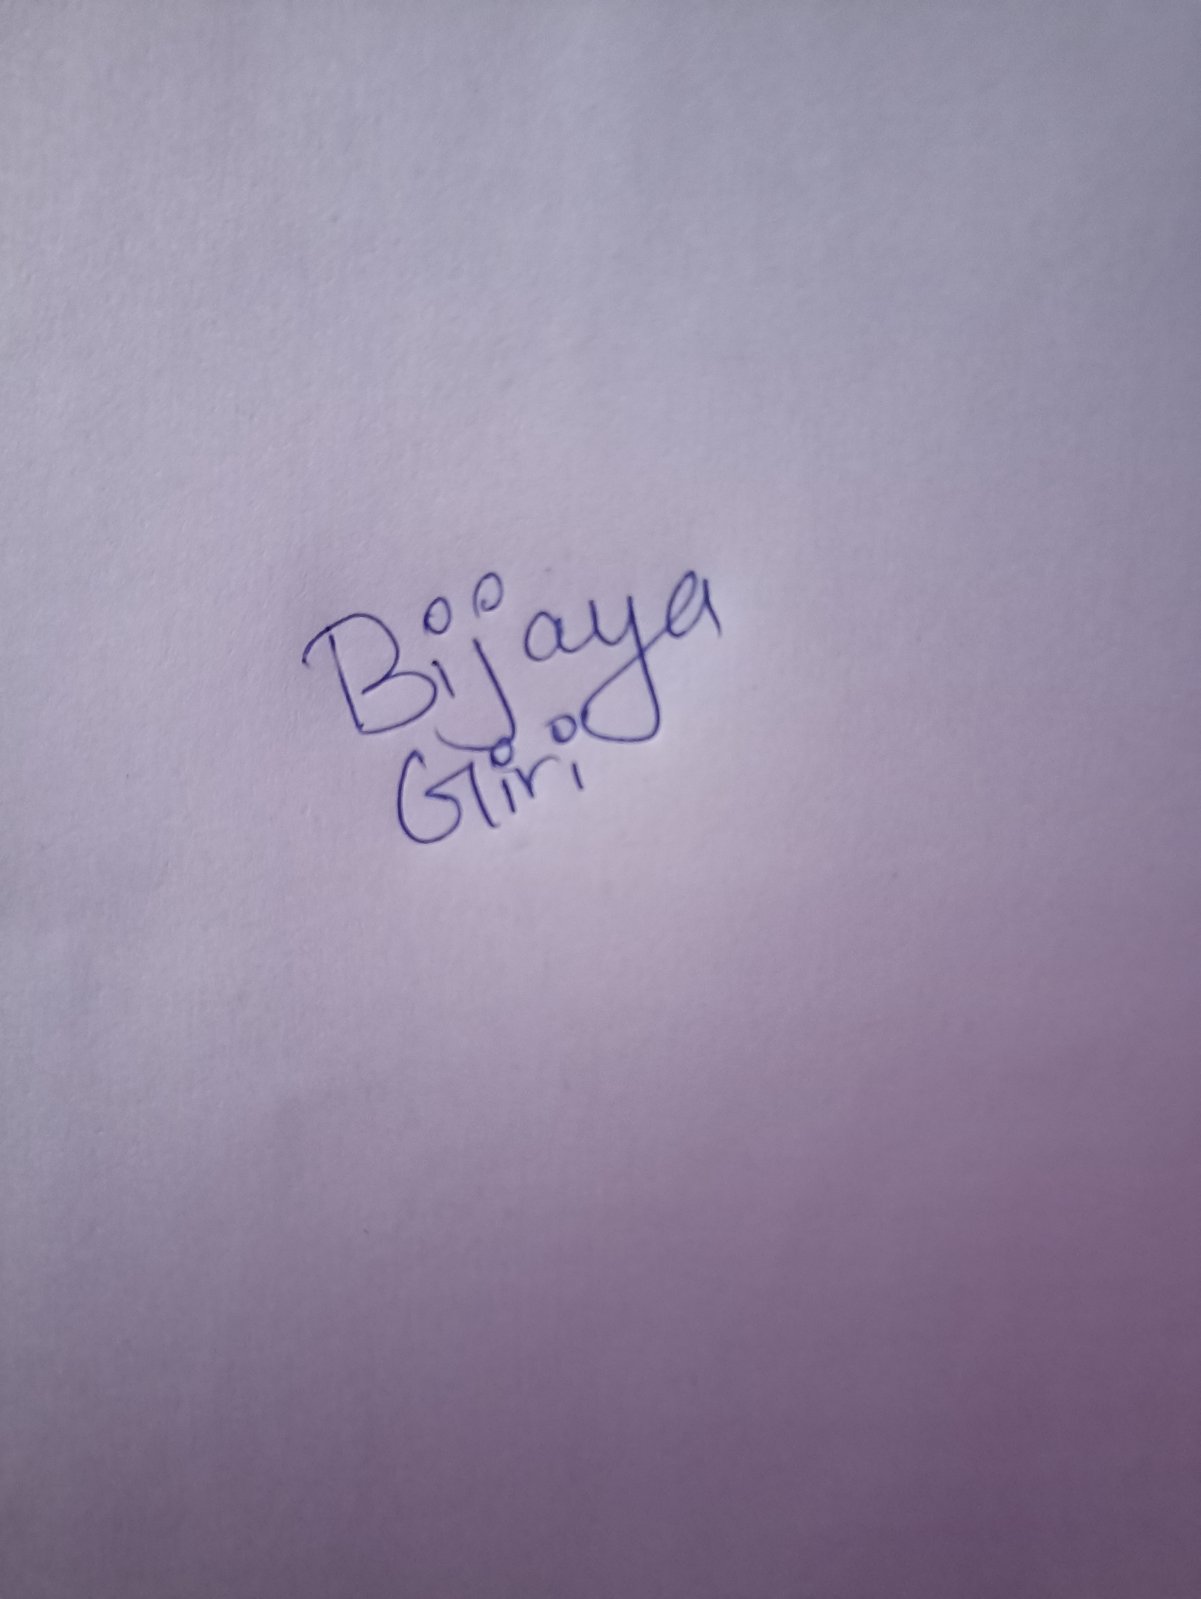 Bijaya
Giri